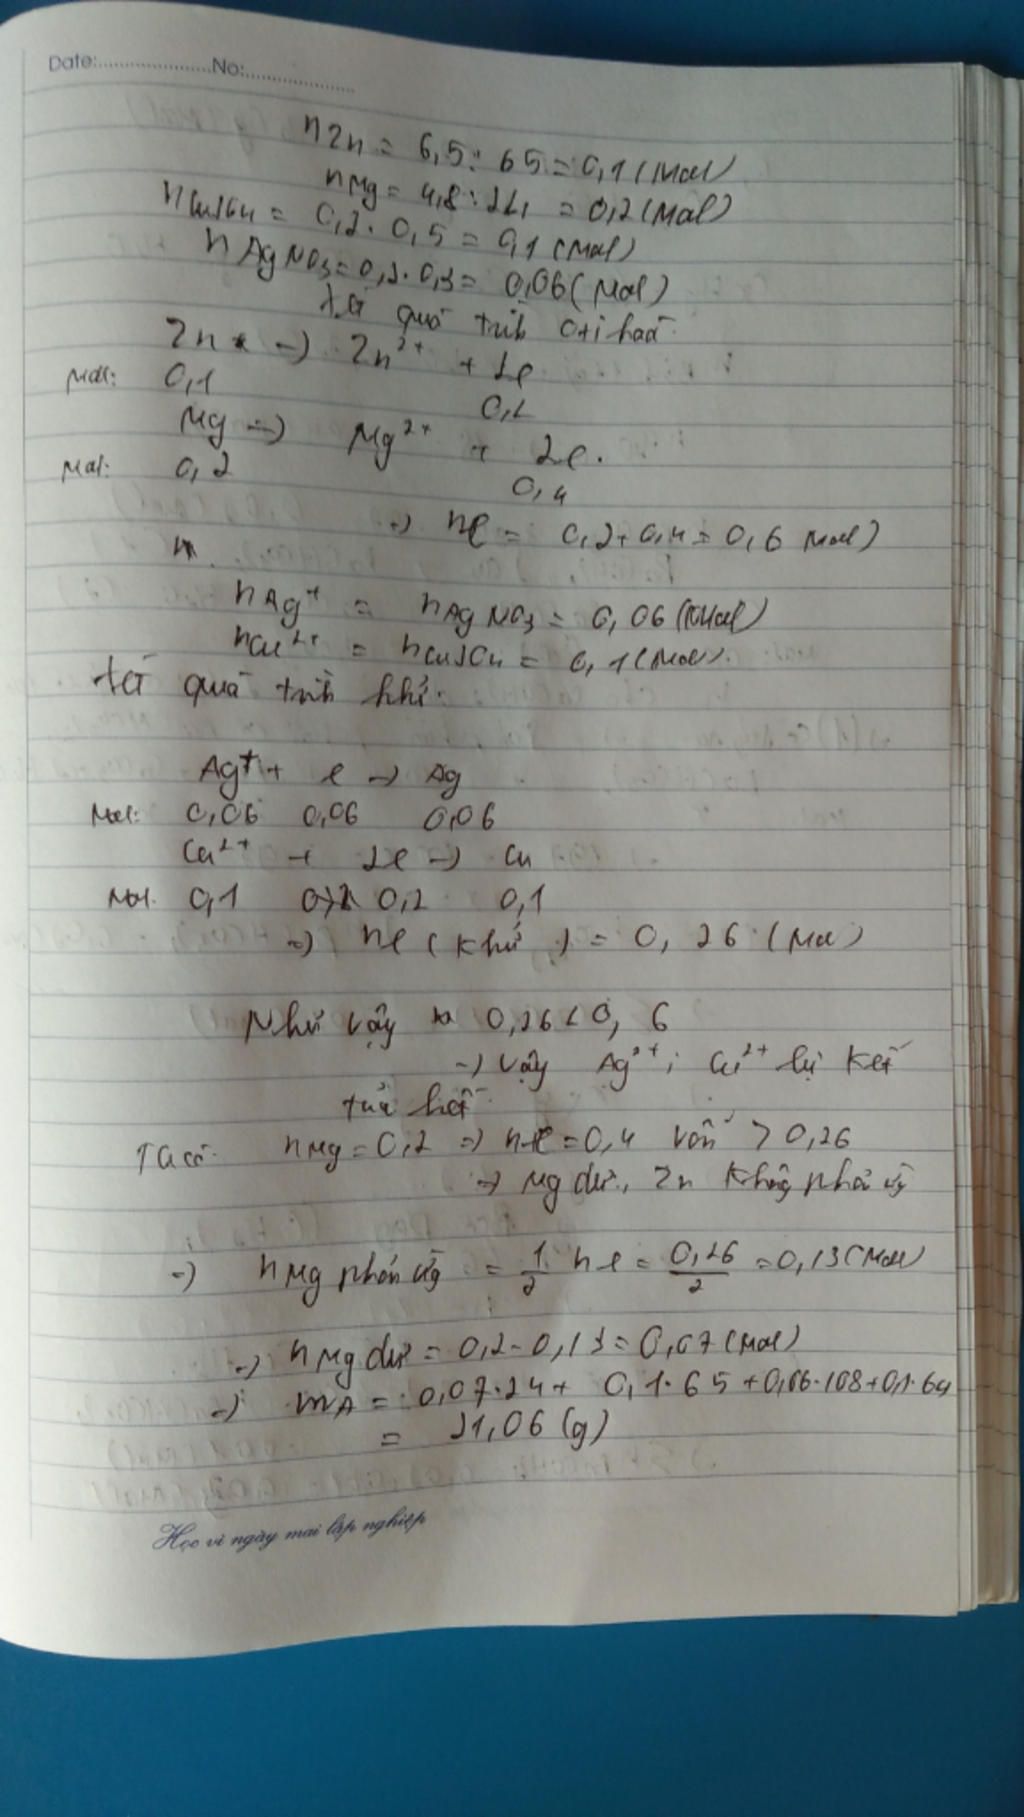 Date:..................No:..................
nZn = 6,5 : 65 = 0,1 (Mol)
nMg = 4,8 : 24 = 0,2 (Mol)
nCuSO4 = 0,2 . 0,5 = 0,1 (Mol)
nAgNO3 = 0,2 . 0,3 = 0,06 (Mol)
xét quá trình oxi hoá
Zn -> Zn²⁺ + 2e
Mol: 0,1 0,2
Mg -> Mg²⁺ + 2e.
Mol: 0,2 0,4
-> ne = 0,2 + 0,4 = 0,6 Mol)
nAg⁺ = nAgNO3 = 0,06 (Mol)
nCu²⁺ = nCuSO4 = 0,1 (Mol).
xét quá trình khử.
Ag⁺ + e -> Ag
Mol: 0,06 0,06 0,06
Cu²⁺ + 2e -> Cu
Mol. 0,1 0,2 0,1
=> ne (khử) = 0,26 (Mol)
Như vậy 0,26 < 0,6
-> vậy Ag²⁺; Cu²⁺ bị kết
tủa hết
Ta có. nMg = 0,2 => ne = 0,4 vốn > 0,26
-> Mg dư, Zn không phản ứng
=> nMg phản ứng = 1/2 ne = 0,26/2 = 0,13 (Mol)
-> nMg dư = 0,2 - 0,13 = 0,07 (Mol)
-> mA = 0,07.24 + 0,1.65 + 0,06.108 + 0,1.64
= 21,06 (g)
Học vì ngày mai lập nghiệp